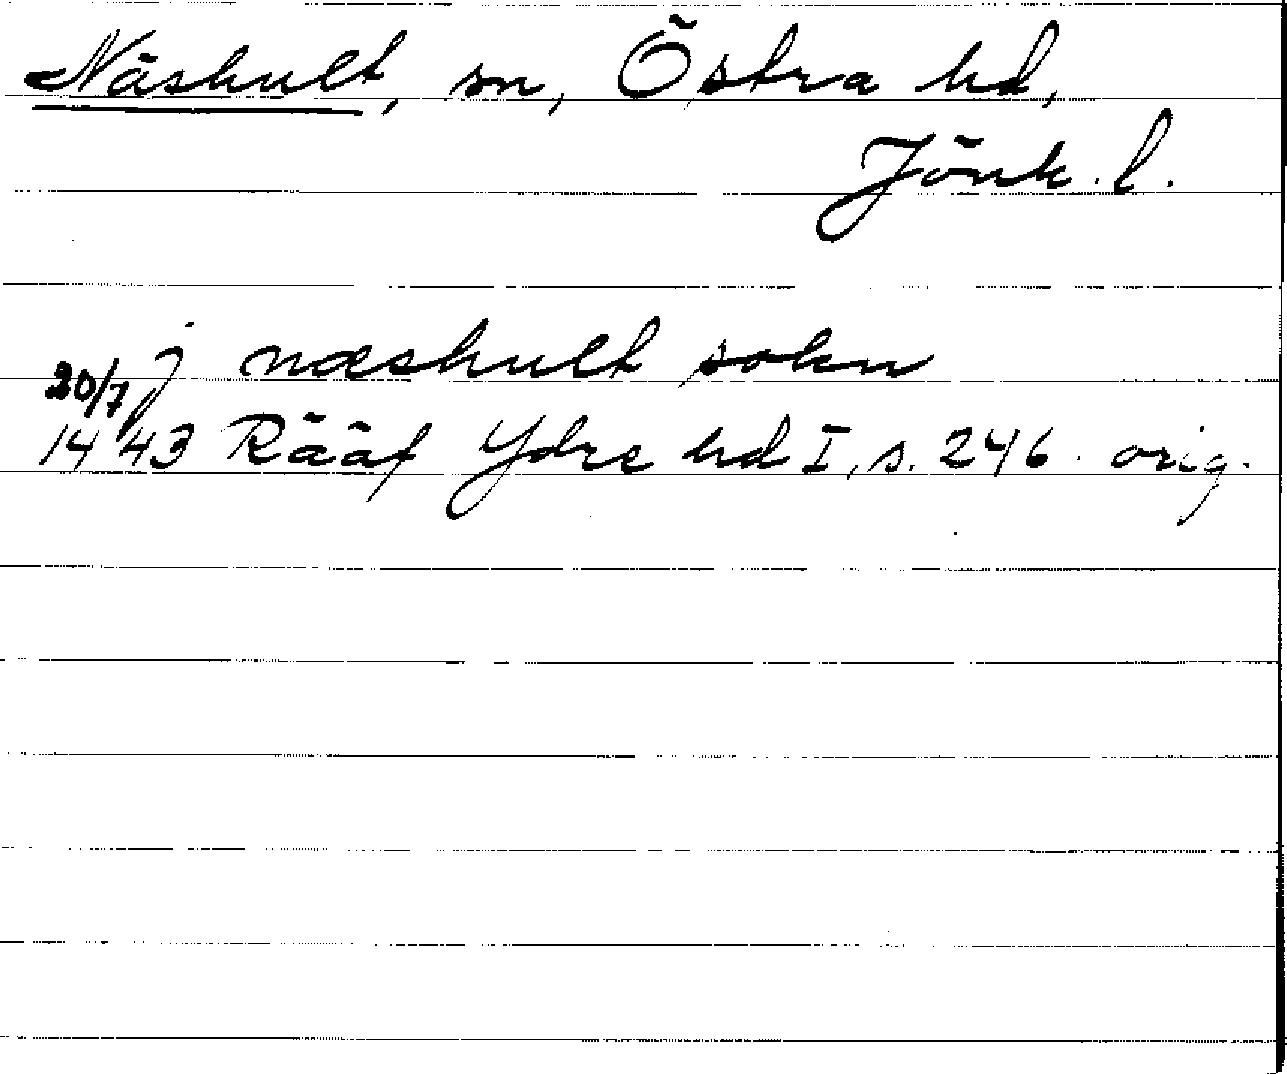 Näshult, sn, Östra hd,
Jönk. l.
j næshult sokn
20/7
1443 Rääf Ydre hd I, s. 246. orig.